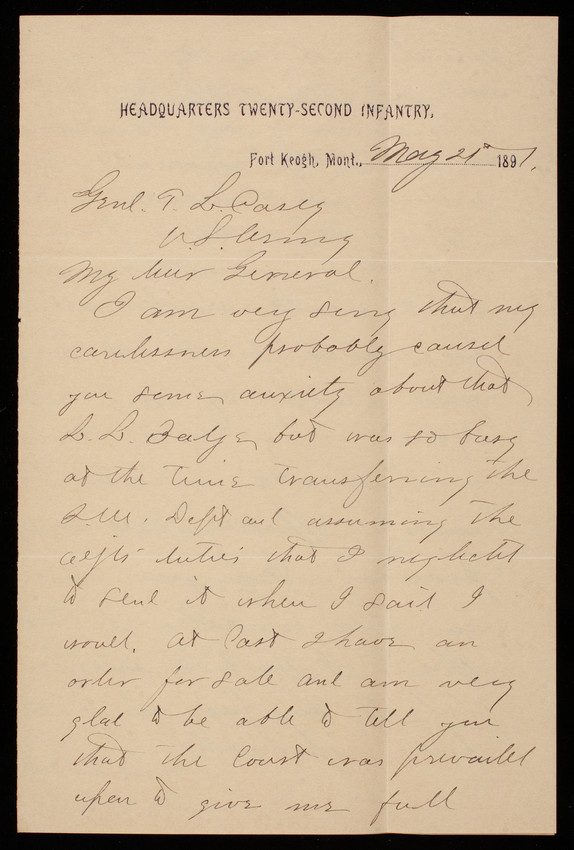 HEADQUARTERS TWENTY-SECOND INFANTRY,
Fort Keogh, Mont., May 21st 1891.
Genl. T. L. Casey
U.S. Army
My Dear General.
I am very sorry that my
carelessness probably caused
you some anxiety about that
L. L. but was so busy
at the time transferring the
Dept and assuming the
adjts duties that I neglected
to send it when I said I
would. At last I have an
order for sale and am very
glad to be able to tell you
that the Court was prevailed
upon to give me full